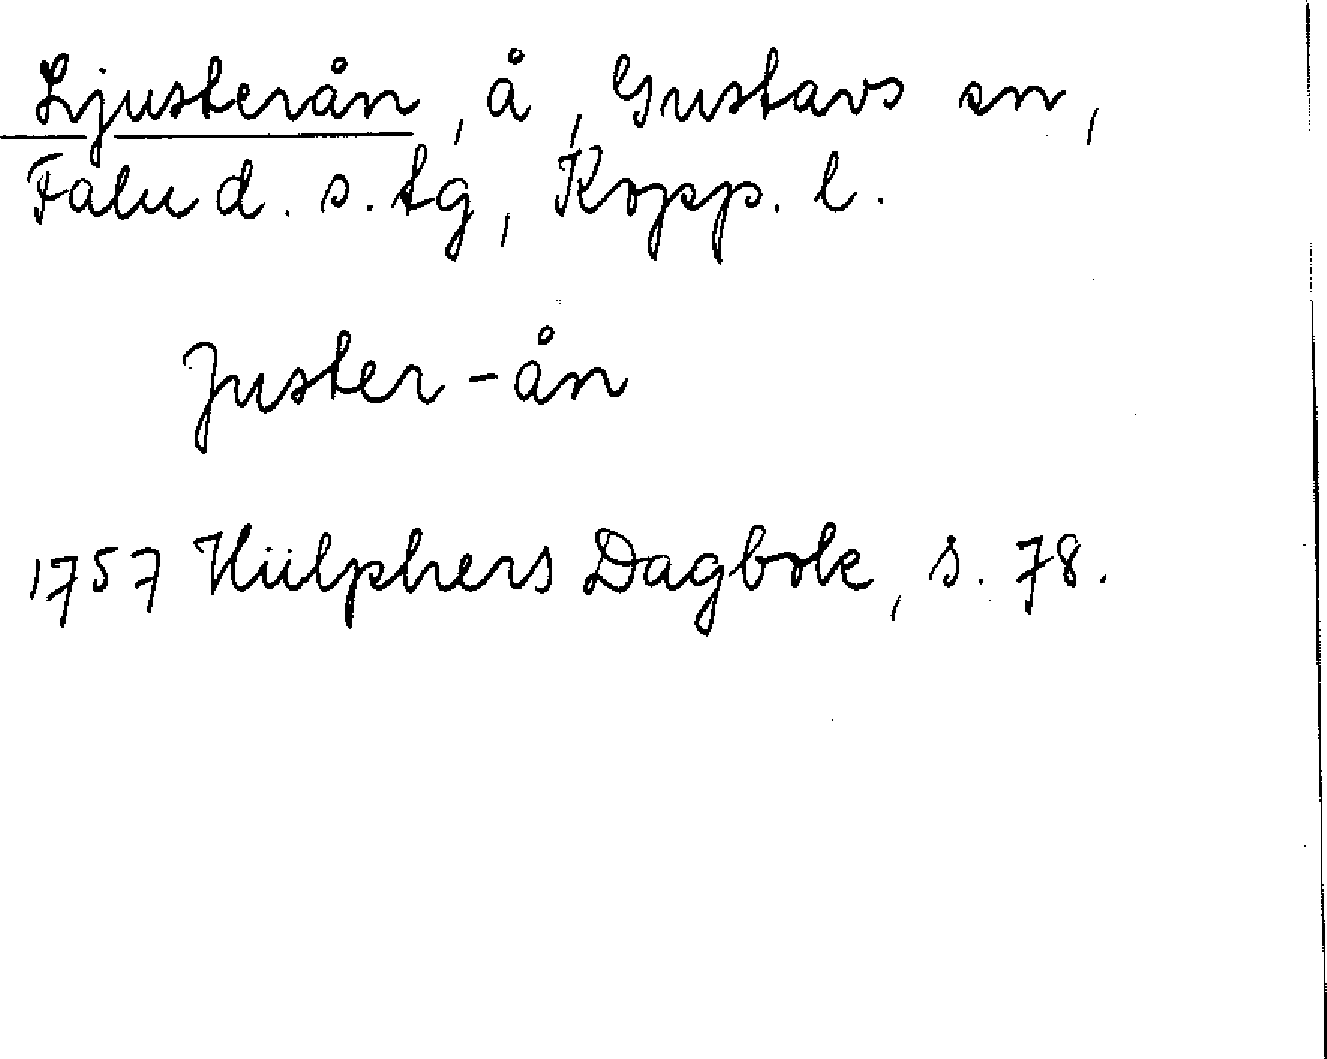 Ljusterån, å, Gustavs sn,
Falu d. s. tg, Kopp. l.
Juster-ån
1757 Hülphers Dagbok, s. 78.